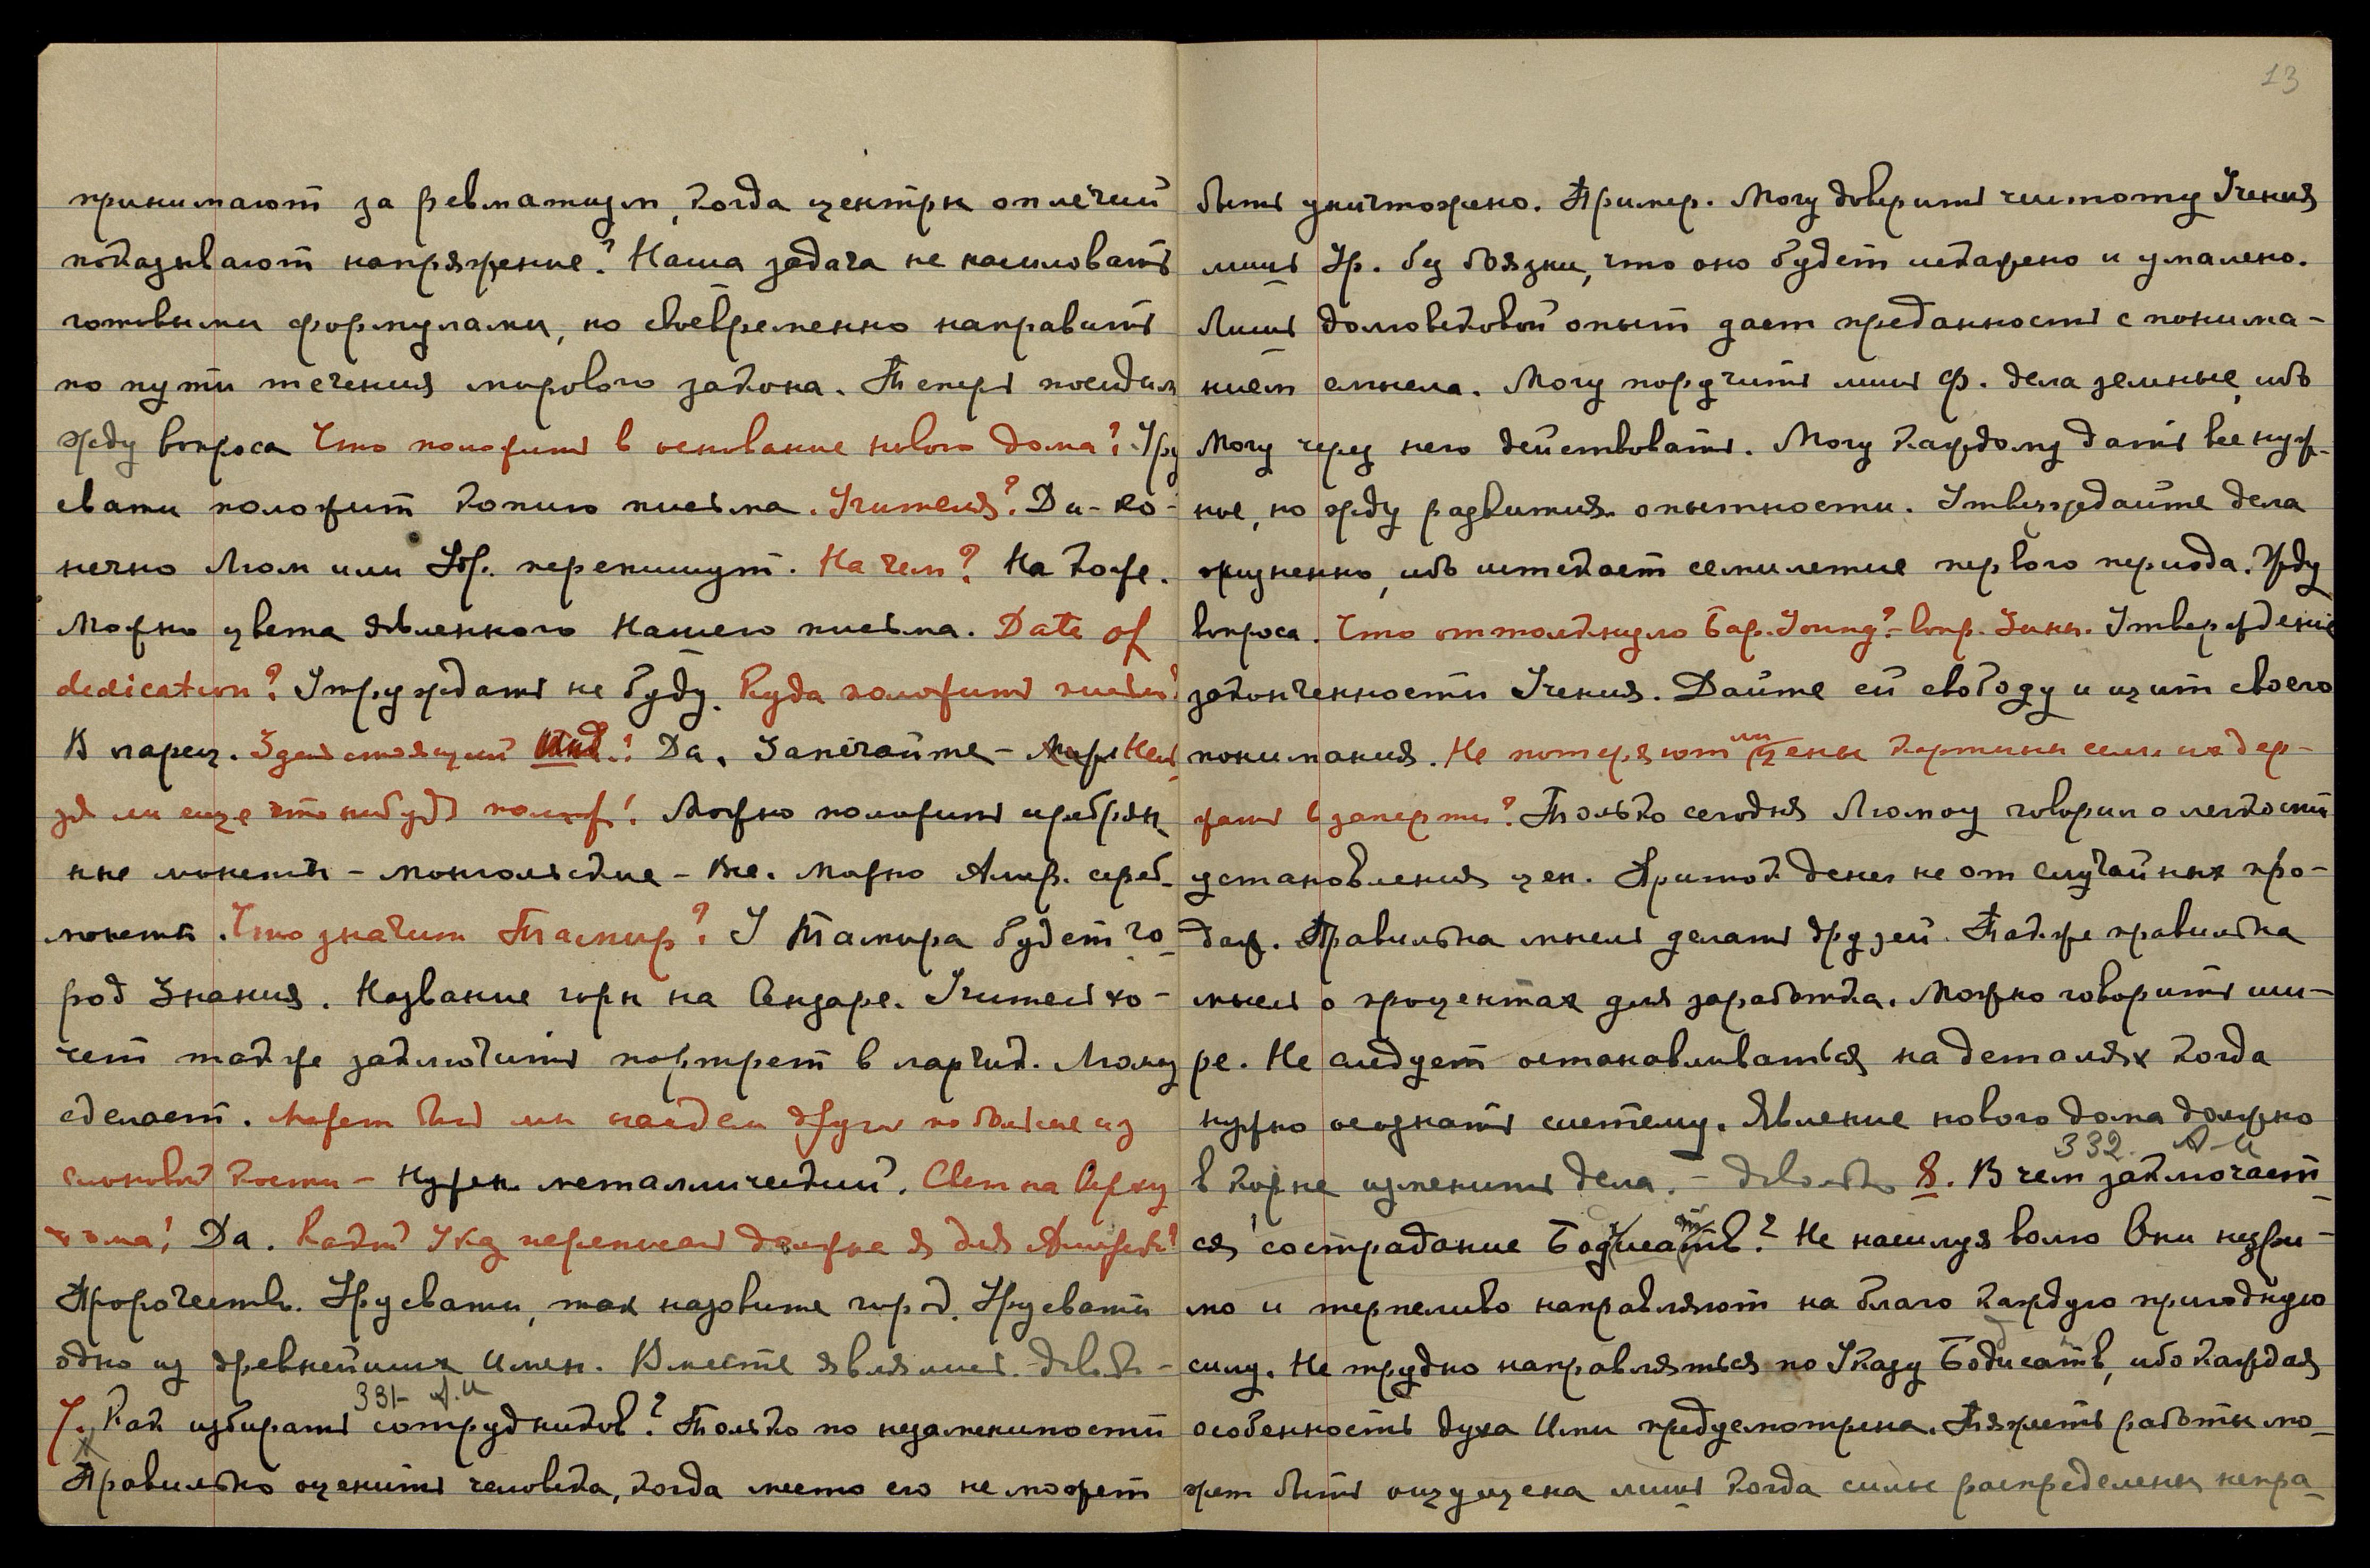 13
принимают за ревматизм, когда центры оплечий
показывают напряжение? Наша задача не насиловать
готовыми формулами, но своевременно направить
по пути течения мирового закона. Теперь посидим
жду вопроса Что положить в основание нового дома? Уру
свати положит копию письма. Учителя? Да - ко-
нечно Люм или Ур. перепишут. На чем? На коже.
Можно цвета явленного Нашего письма. Date of
dedication? Утруждать не буду. Куда положить письмо?
В ларец. Здесь стоящий? Да. Запечатайте - Нель
зя ли еще что нибудь полож? Можно положить серебрян
ные монеты - монгольские - Все. Можно Амер. сереб.
монеты. Что значит Тамир? У Тамира будет го-
род Знания. Название горы на Сензаре. Учитель хо-
чет также заключить портрет в ларчик. Люмоу
сделает. Может быть мы найдем другой побольше из
слоновой кости - Нужен металлический. Свет на Верху
холма? Да. Какой Указ переписать должна я для Америки?
Пророчество. Урусвати, так назовите город. Урусвати
одно из древнейших Имен. Вместе явлюсь. - довольно -
331- А.И
7. Как избирать сотрудников? Только по незаменимости
Правильно оценить человека, когда место его не может
быть уничтожено. Пример. Могу доверить чистоту Учения
лишь Ур. без боязни, что оно будет искажено и умалено.
Лишь долговековой опыт дает преданность с понима-
нием смысла. Могу поручить лишь Ф. дела земные, ибо
Могу через него действовать. Могу каждому дать все нуж-
ное, но жду развития опытности. Утверждайте дела
жизненно, ибо истекает семилетие первого периода. Жду
вопроса. Что оттолкнуло Бар. Young? - вопр. Зины. Утверждение
законченности Учения. Дайте ей свободу и щит своего
понимания. Не потеряют ли цены картины если их дер-
жать взаперти? Только сегодня Люмоу говорил о легкости
установления цен. Приток денег не от случайных про-
даж. Правильна мысль делать друзей. Также правильна
мысль о процентах для заработка. Можно говорить ши-
ре. Не следует останавливаться на деталях когда
нужно осознать систему. Явление нового дома должно
в корне изменить дела. - довольно 8. В чем заключает-
332. А-И
ся сострадание Бодисатв? Не насилуя волю Они незри-
мо и терпеливо направляют на благо каждую пригодную
силу. Не трудно направляться по Указу Бодисатв, ибо каждая
особенность духа Ими предусмотрена. Тяжесть работы мо-
жет быть ощущена лишь когда силы распределены непра-